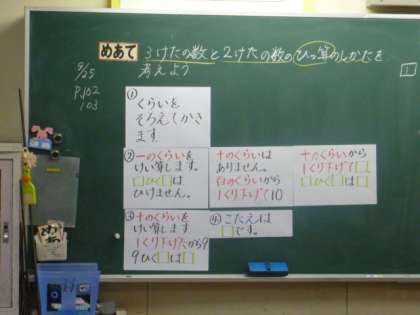 めあて 3けたの数と2けたの数のひっ算のしかたを
考えよう
9/25
P.102
103
①
くらいを
そろえてかき
ます
②一のくらいを
けい算します。
□ひく□は
ひけません。
十のくらいは
ありません。
百のくらいから
1くり下げて10
十のくらいから
1くり下げて□
□ひく□は□
③十のくらいを
けい算します
1くり下げたから9
9ひく□は□
④こたえは
□です。
1